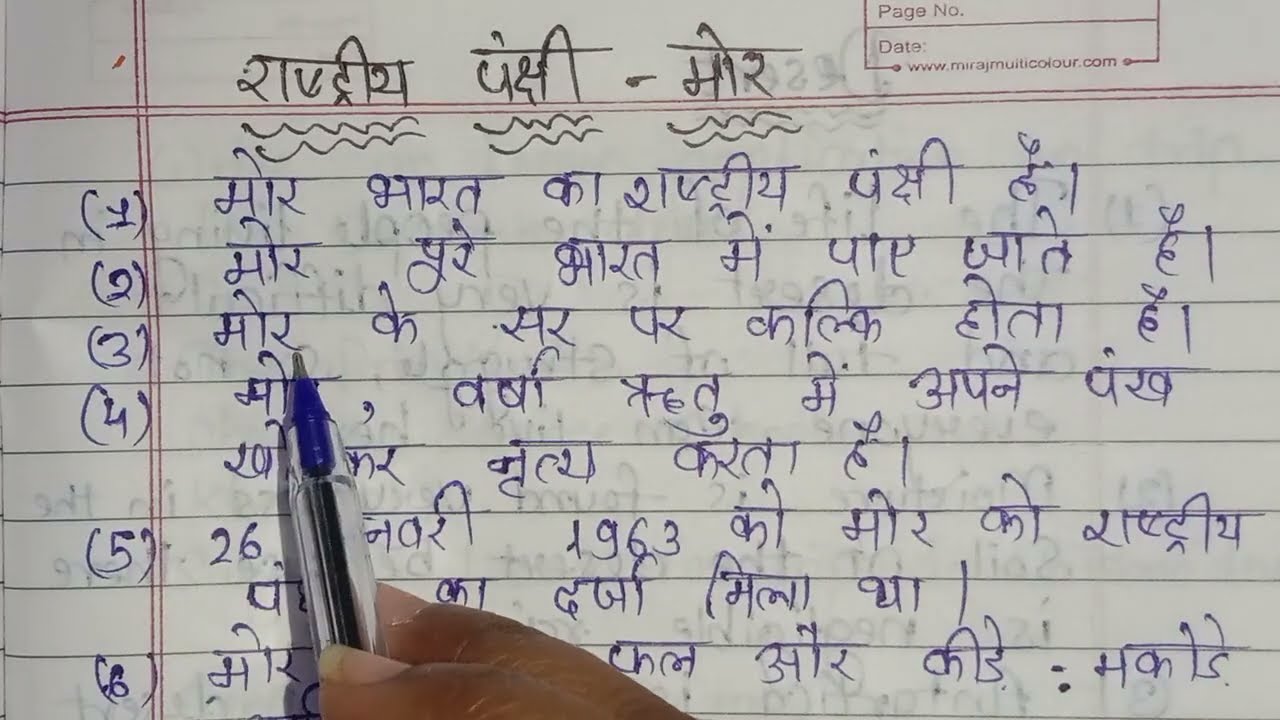 Page No.
Date:
www.mirajmulticolour.com
राष्ट्रीय पंक्षी - मोर
(1) मोर भारत का राष्ट्रीय पंक्षी है।
(2) मोर पूरे भारत में पाए जाते है।
(3) मोर के सर पर कल्कि होता है।
(4) मोर, वर्षा ऋतु में अपने पंख
कर नृत्य करता है।
(5) 26 1963 को मोर को राष्ट्रीय
का दर्जा मिला था।
(6) मोर फल और कीड़े - मकोड़े